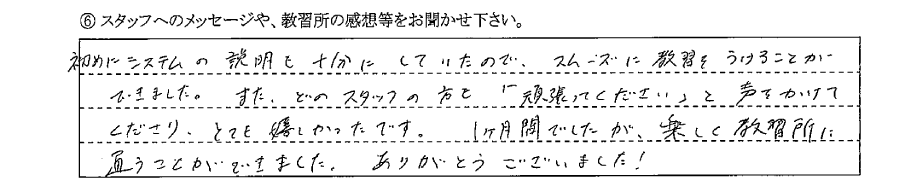 ⑥ スタッフへのメッセージや、教習所の感想等をお聞かせ下さい。
初めにシステムの説明も十分にしていたので、スムーズに教習をうけることが
できました。 また、どのスタッフの方も「頑張ってください」と声をかけて
くださり、とても嬉しかったです。 1ヶ月間でしたが、楽しく教習所に
通うことができました。 ありがとうございました!